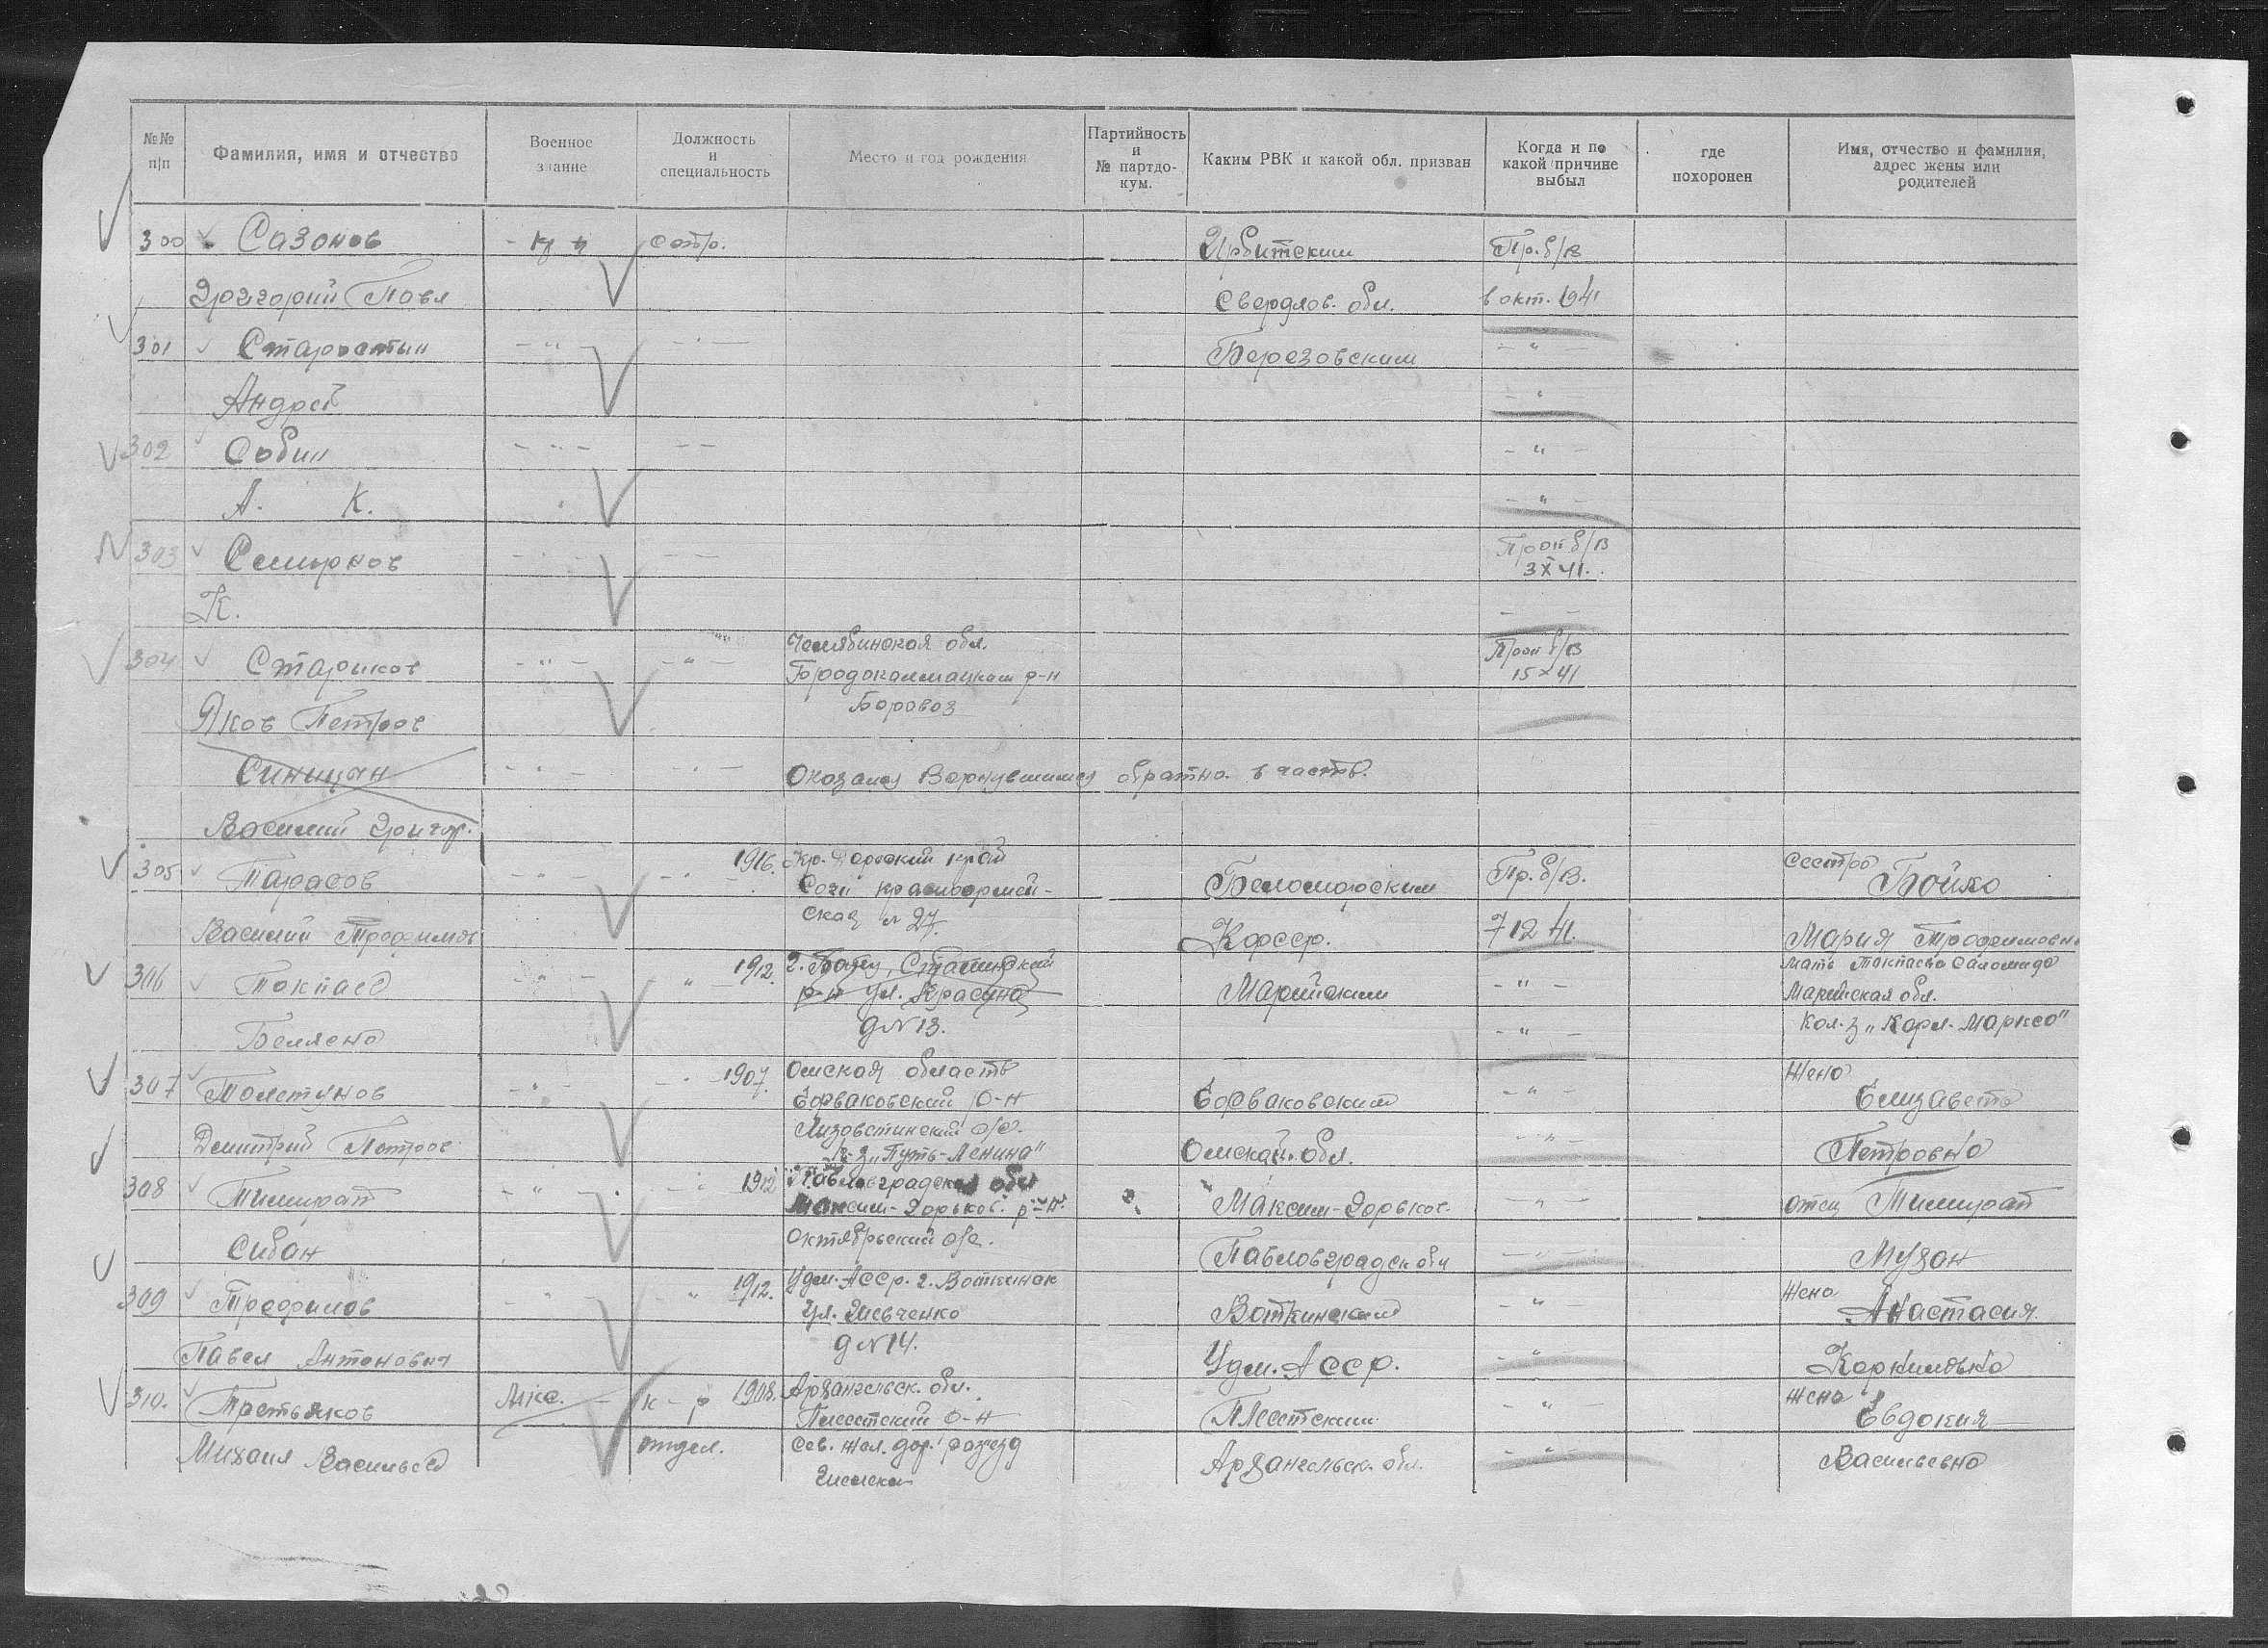 №№ п/п Фамилия, имя и отчество Военное звание Должность и специальность Место и год рождения Партийность и № партдокум. Каким РВК и какой обл. призван Когда и по какой причине выбыл где похоронен Имя, отчество и фамилия, адрес жены или родителей
300 Сазонов стр. Ирбитским Пр. б/в
Григорий Павл Свердлов. обл. в окт. 1941
301 Старостин - " - - " - Березовским - " -
Андрей - " -
302 Собин - " - - - - " -
А. К. - " -
303 Смирнов - " - - - Проп б/в
3 X 41.
К. - -
304 Стариков - " - - " - Челябинская обл. Проп б/в
Бродокалмацким р-н 15 X 41
Яков Петров Боровое
Синицын - " - - " - Оказался вернувшимся обратно в часть.
Василий Григор.
305 Тарасов - " - - " 1916. Кр-дарский край Беломорским Пр. б/в. сестра Бойко
Сочи красноармей-
ская № 27.
Василий Трофимов Кфсср. 7 12 41. Мария Трофимовна
306 Токпаев - " - " 1912. г. Баку, р-н ул. Красина Марийским - " - мать Токпаева Саломида
д № 13. Марийская обл.
Беляево - " - кол-з "Карл-Маркса"
307 Толстунов - " - - " 1907. Омская область - " - жена
р-н Елизавета
Дмитрий Петров к-з "Путь-Ленина" Омской обл. - " - Петровна
308 Тимират - " - - " 1912 Павловградская обл
Максим-Горьков. р-н. Максим-Горьков. - " - отец Тимират
Сибан Октябрьский с/с. Павловградск обл - " - Музан
309 Трофимов - " - - " 1912. Удм. АССР. г. Воткинск Воткинским - " - жена Анастасия
ул. Шевченко
Павел Антонович д № 14. Удм. АССР. - " - Корниловна
310. Третьяков Мкс. - к-р 1908. Архангельск. обл. Плесетским - " - жена Евдокия
Плесетский р-н
Михаил Васильев отдел. Сев. жел. дор. разъезд Архангельск. обл. - " - Васильевна